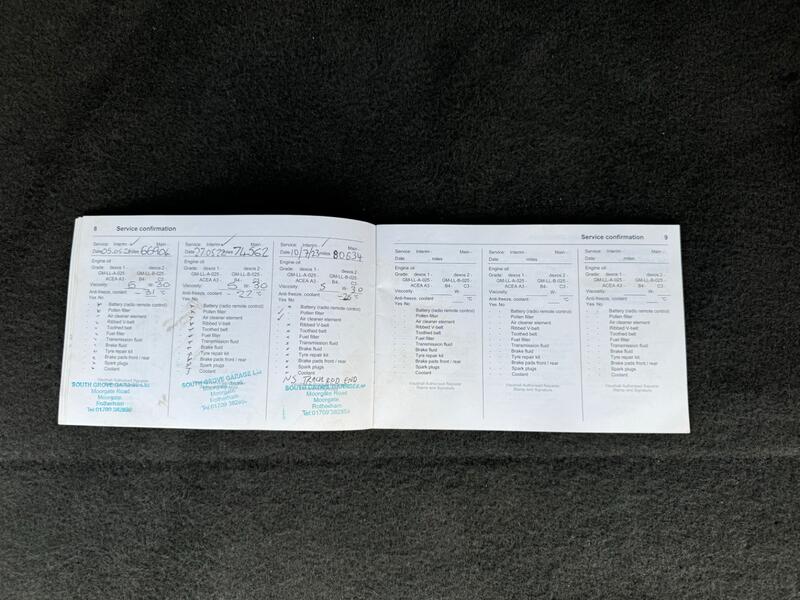 8 Service confirmation
Service: Interim Main
Date 05.05.21 Miles 66906
Engine oil
Grade: dexos 1 dexos 2
GM-LL-A-025 GM-LL-B-025
ACEA A3 B4 C3
Viscosity: 5 W 30
Anti-freeze, coolant -31 °C
Yes No
Battery (radio remote control)
Pollen filter
Air cleaner element
Ribbed V-belt
Toothed belt
Fuel filter
Transmission fluid
Brake fluid
Tyre repair kit
Brake pads front / rear
Spark plugs
Coolant
Vauxhall Authorised Repairer
SOUTH GROVE GARAGE Ltd
Moorgate Road
Moorgate,
Rotherham
Tel: 01709 382856
Service: Interim Main
Date 27.05.22 Miles 74562
Engine oil
Grade: dexos 1 dexos 2
GM-LL-A-025 GM-LL-B-025
ACEA A3 B4 C3
Viscosity: 5 W 30
Anti-freeze, coolant -27 °C
Yes No
Battery (radio remote control)
Pollen filter
Air cleaner element
Ribbed V-belt
Toothed belt
Fuel filter
Transmission fluid
Brake fluid
Tyre repair kit
Brake pads front / rear
Spark plugs
Coolant
SOUTH GROVE GARAGE Ltd
Moorgate Road
Moorgate,
Rotherham
Tel: 01709 382856
Service: Interim Main
Date 10/7/23 miles 80634
Engine oil
Grade: dexos 1 dexos 2
GM-LL-A-025 GM-LL-B-025
ACEA A3 B4 C3
Viscosity: 5 W 30
Anti-freeze, coolant -26 °C
Yes No
Battery (radio remote control)
Pollen filter
Air cleaner element
Ribbed V-belt
Toothed belt
Fuel filter
Transmission fluid
Brake fluid
Tyre repair kit
Brake pads front / rear
Spark plugs
Coolant
NS TRACK ROD END
SOUTH GROVE GARAGE Ltd
Moorgate Road
Moorgate,
Rotherham
Tel: 01709 382856
Service confirmation 9
Service: Interim Main
Date miles
Engine oil
Grade: dexos 1 dexos 2
GM-LL-A-025 GM-LL-B-025
ACEA A3 B4 C3
Viscosity: W
Anti-freeze, coolant °C
Yes No
Battery (radio remote control)
Pollen filter
Air cleaner element
Ribbed V-belt
Toothed belt
Fuel filter
Transmission fluid
Brake fluid
Tyre repair kit
Brake pads front / rear
Spark plugs
Coolant
Vauxhall Authorised Repairer
Stamp and Signature
Service: Interim Main
Date miles
Engine oil
Grade: dexos 1 dexos 2
GM-LL-A-025 GM-LL-B-025
ACEA A3 B4 C3
Viscosity: W
Anti-freeze, coolant °C
Yes No
Battery (radio remote control)
Pollen filter
Air cleaner element
Ribbed V-belt
Toothed belt
Fuel filter
Transmission fluid
Brake fluid
Tyre repair kit
Brake pads front / rear
Spark plugs
Coolant
Vauxhall Authorised Repairer
Stamp and Signature
Service: Interim Main
Date miles
Engine oil
Grade: dexos 1 dexos 2
GM-LL-A-025 GM-LL-B-025
ACEA A3 B4 C3
Viscosity: W
Anti-freeze, coolant °C
Yes No
Battery (radio remote control)
Pollen filter
Air cleaner element
Ribbed V-belt
Toothed belt
Fuel filter
Transmission fluid
Brake fluid
Tyre repair kit
Brake pads front / rear
Spark plugs
Coolant
Vauxhall Authorised Repairer
Stamp and Signature